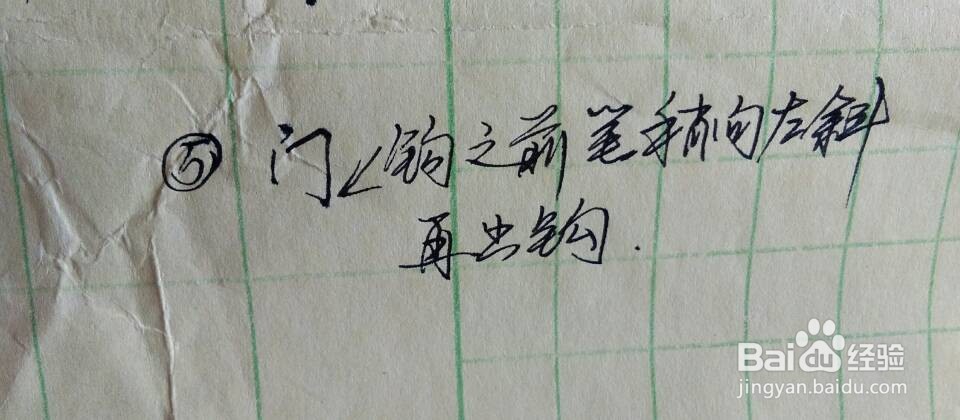 ⑤ 门∠钩之前笔稍向左斜
再出钩.
Baidu经验
jingyan.baidu.com